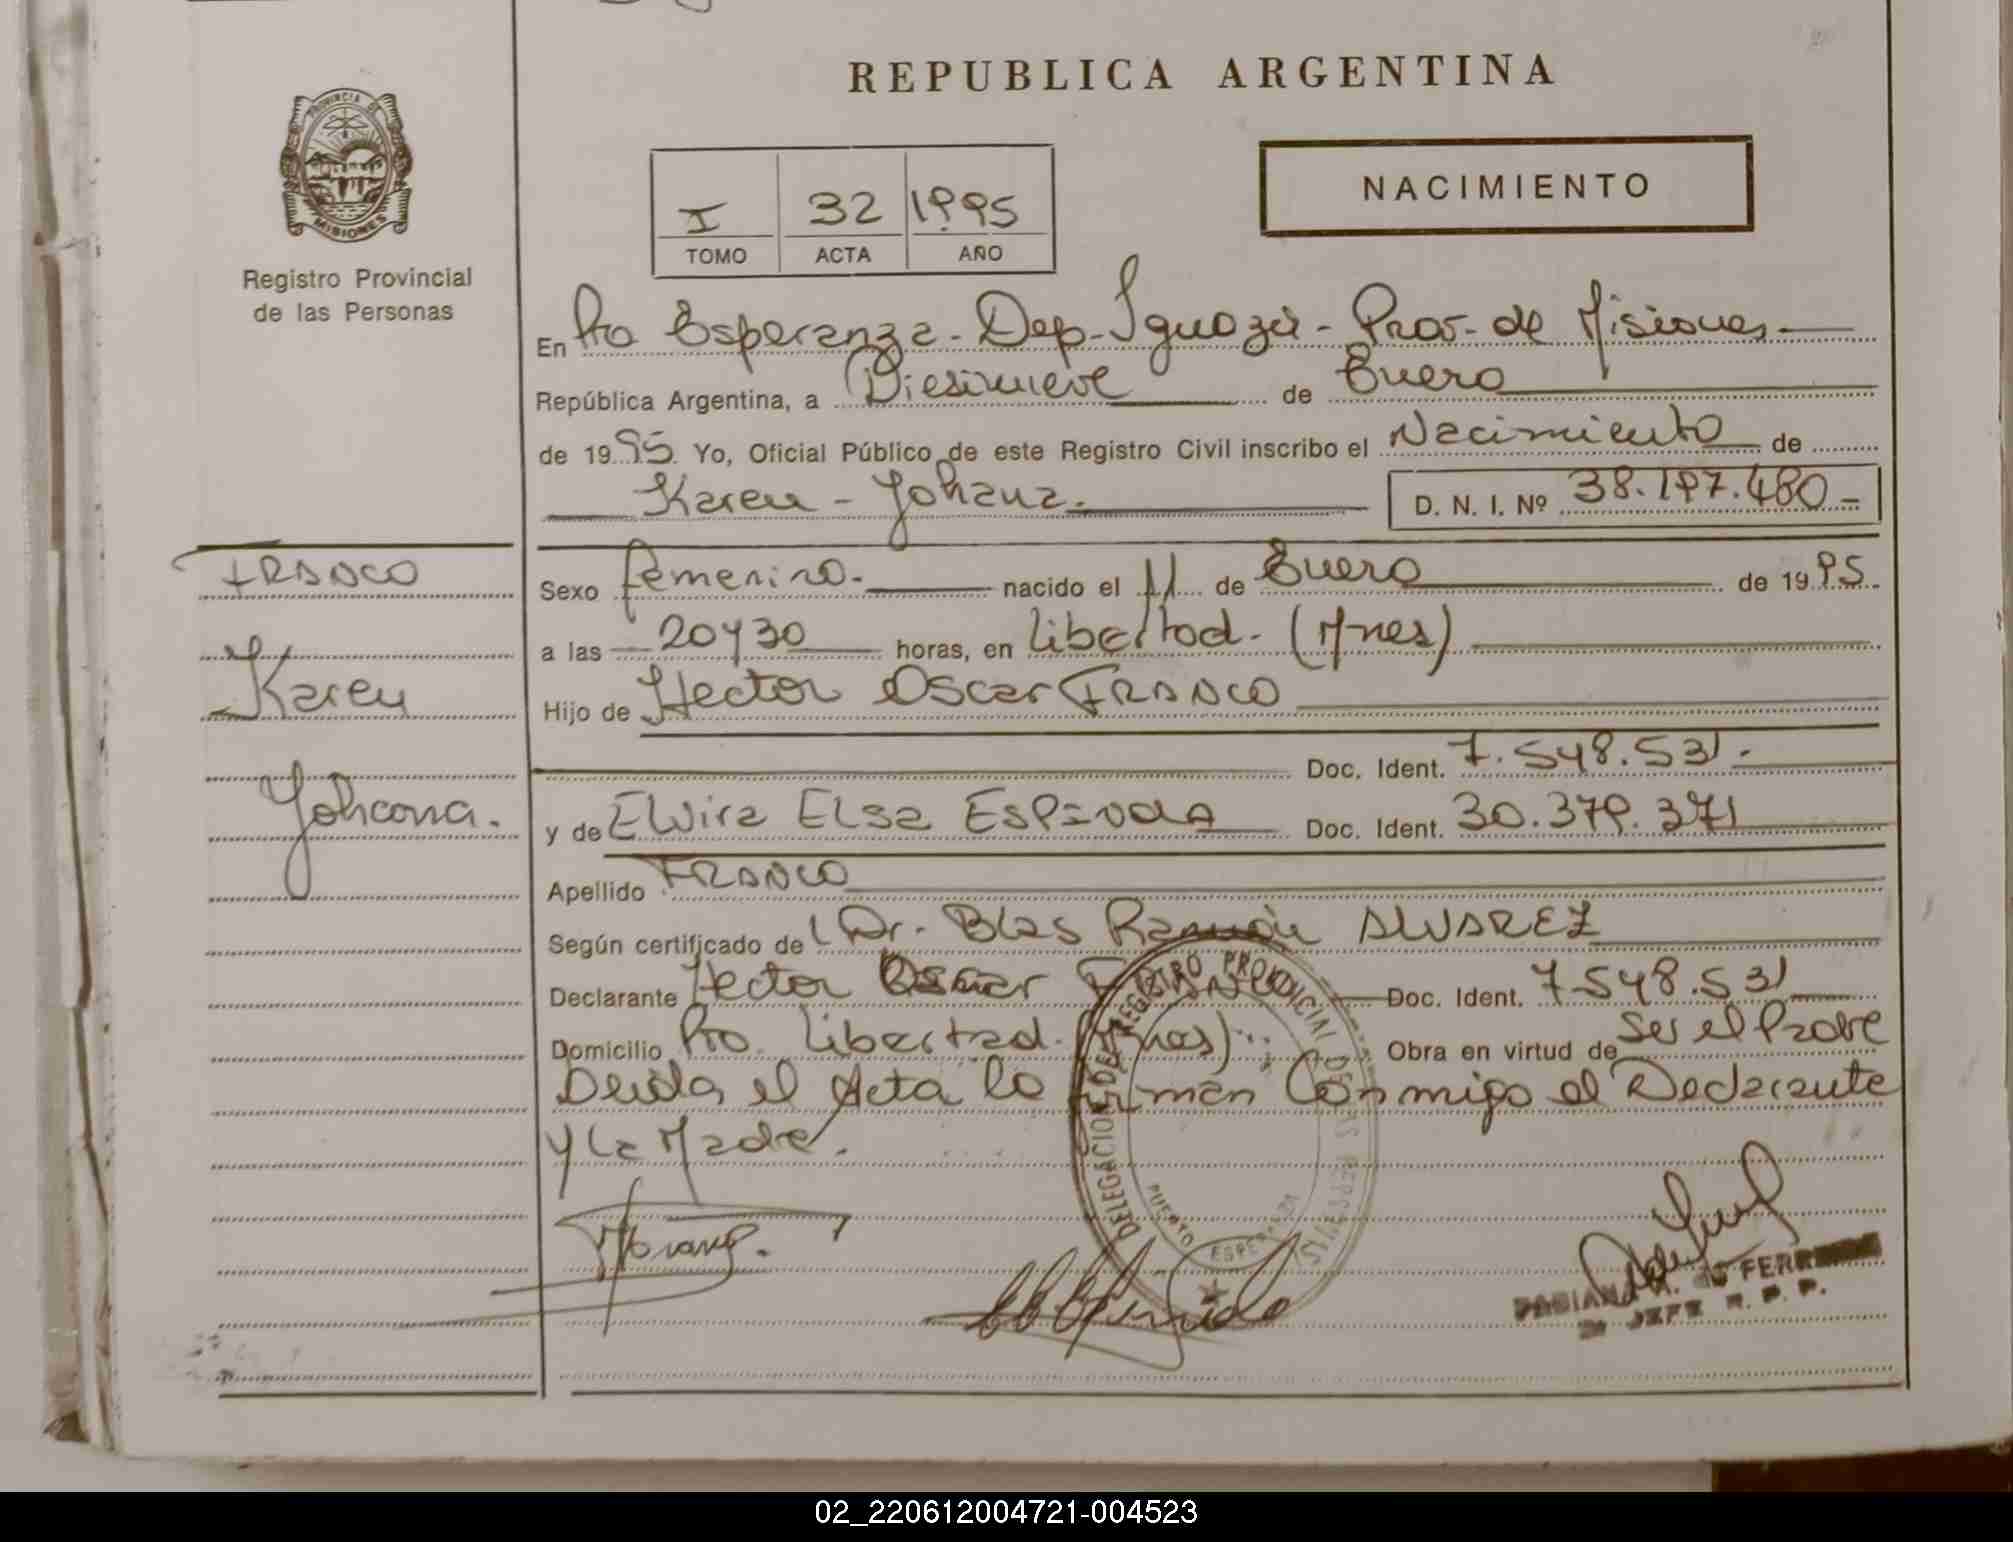 REPUBLICA ARGENTINA
PROVINCIA DE
MISIONES
Registro Provincial
de las Personas
I 32 1995
TOMO ACTA AÑO
NACIMIENTO
En Pto Esperanza - Dep- Iguazú - Prov- de Misiones
República Argentina, a Diesinueve de Enero
de 1995 Yo, Oficial Público de este Registro Civil inscribo el Nacimiento de
Karen - Johana. D. N. I. Nº 38.197.480 -
FRANCO
Karen
Johanna.
Sexo femenino. nacido el 11 de Enero de 1995
a las 20 y 30 horas, en Libertad. (Mnes)
Hijo de Hector Oscar FRANCO
Doc. Ident. 7.548.531.
y de ELvira ELsa ESPINDOLA Doc. Ident. 30.379.371
Apellido FRANCO
Según certificado de Dr. Blas Ramón ALVAREZ
Declarante Hector Oscar FRANCO Doc. Ident. 7548.531
Domicilio Pto. Libertad. (Mnes) Obra en virtud de ser el Padre
Leida el Acta la firman Conmigo el Declarante
y la Madre.
DELEGACION DEL REGISTRO PROVINCIAL DE LAS PERSONAS
PUERTO ESPERANZA
FERREIRA
JEFE R. P. P.
02_220612004721-004523